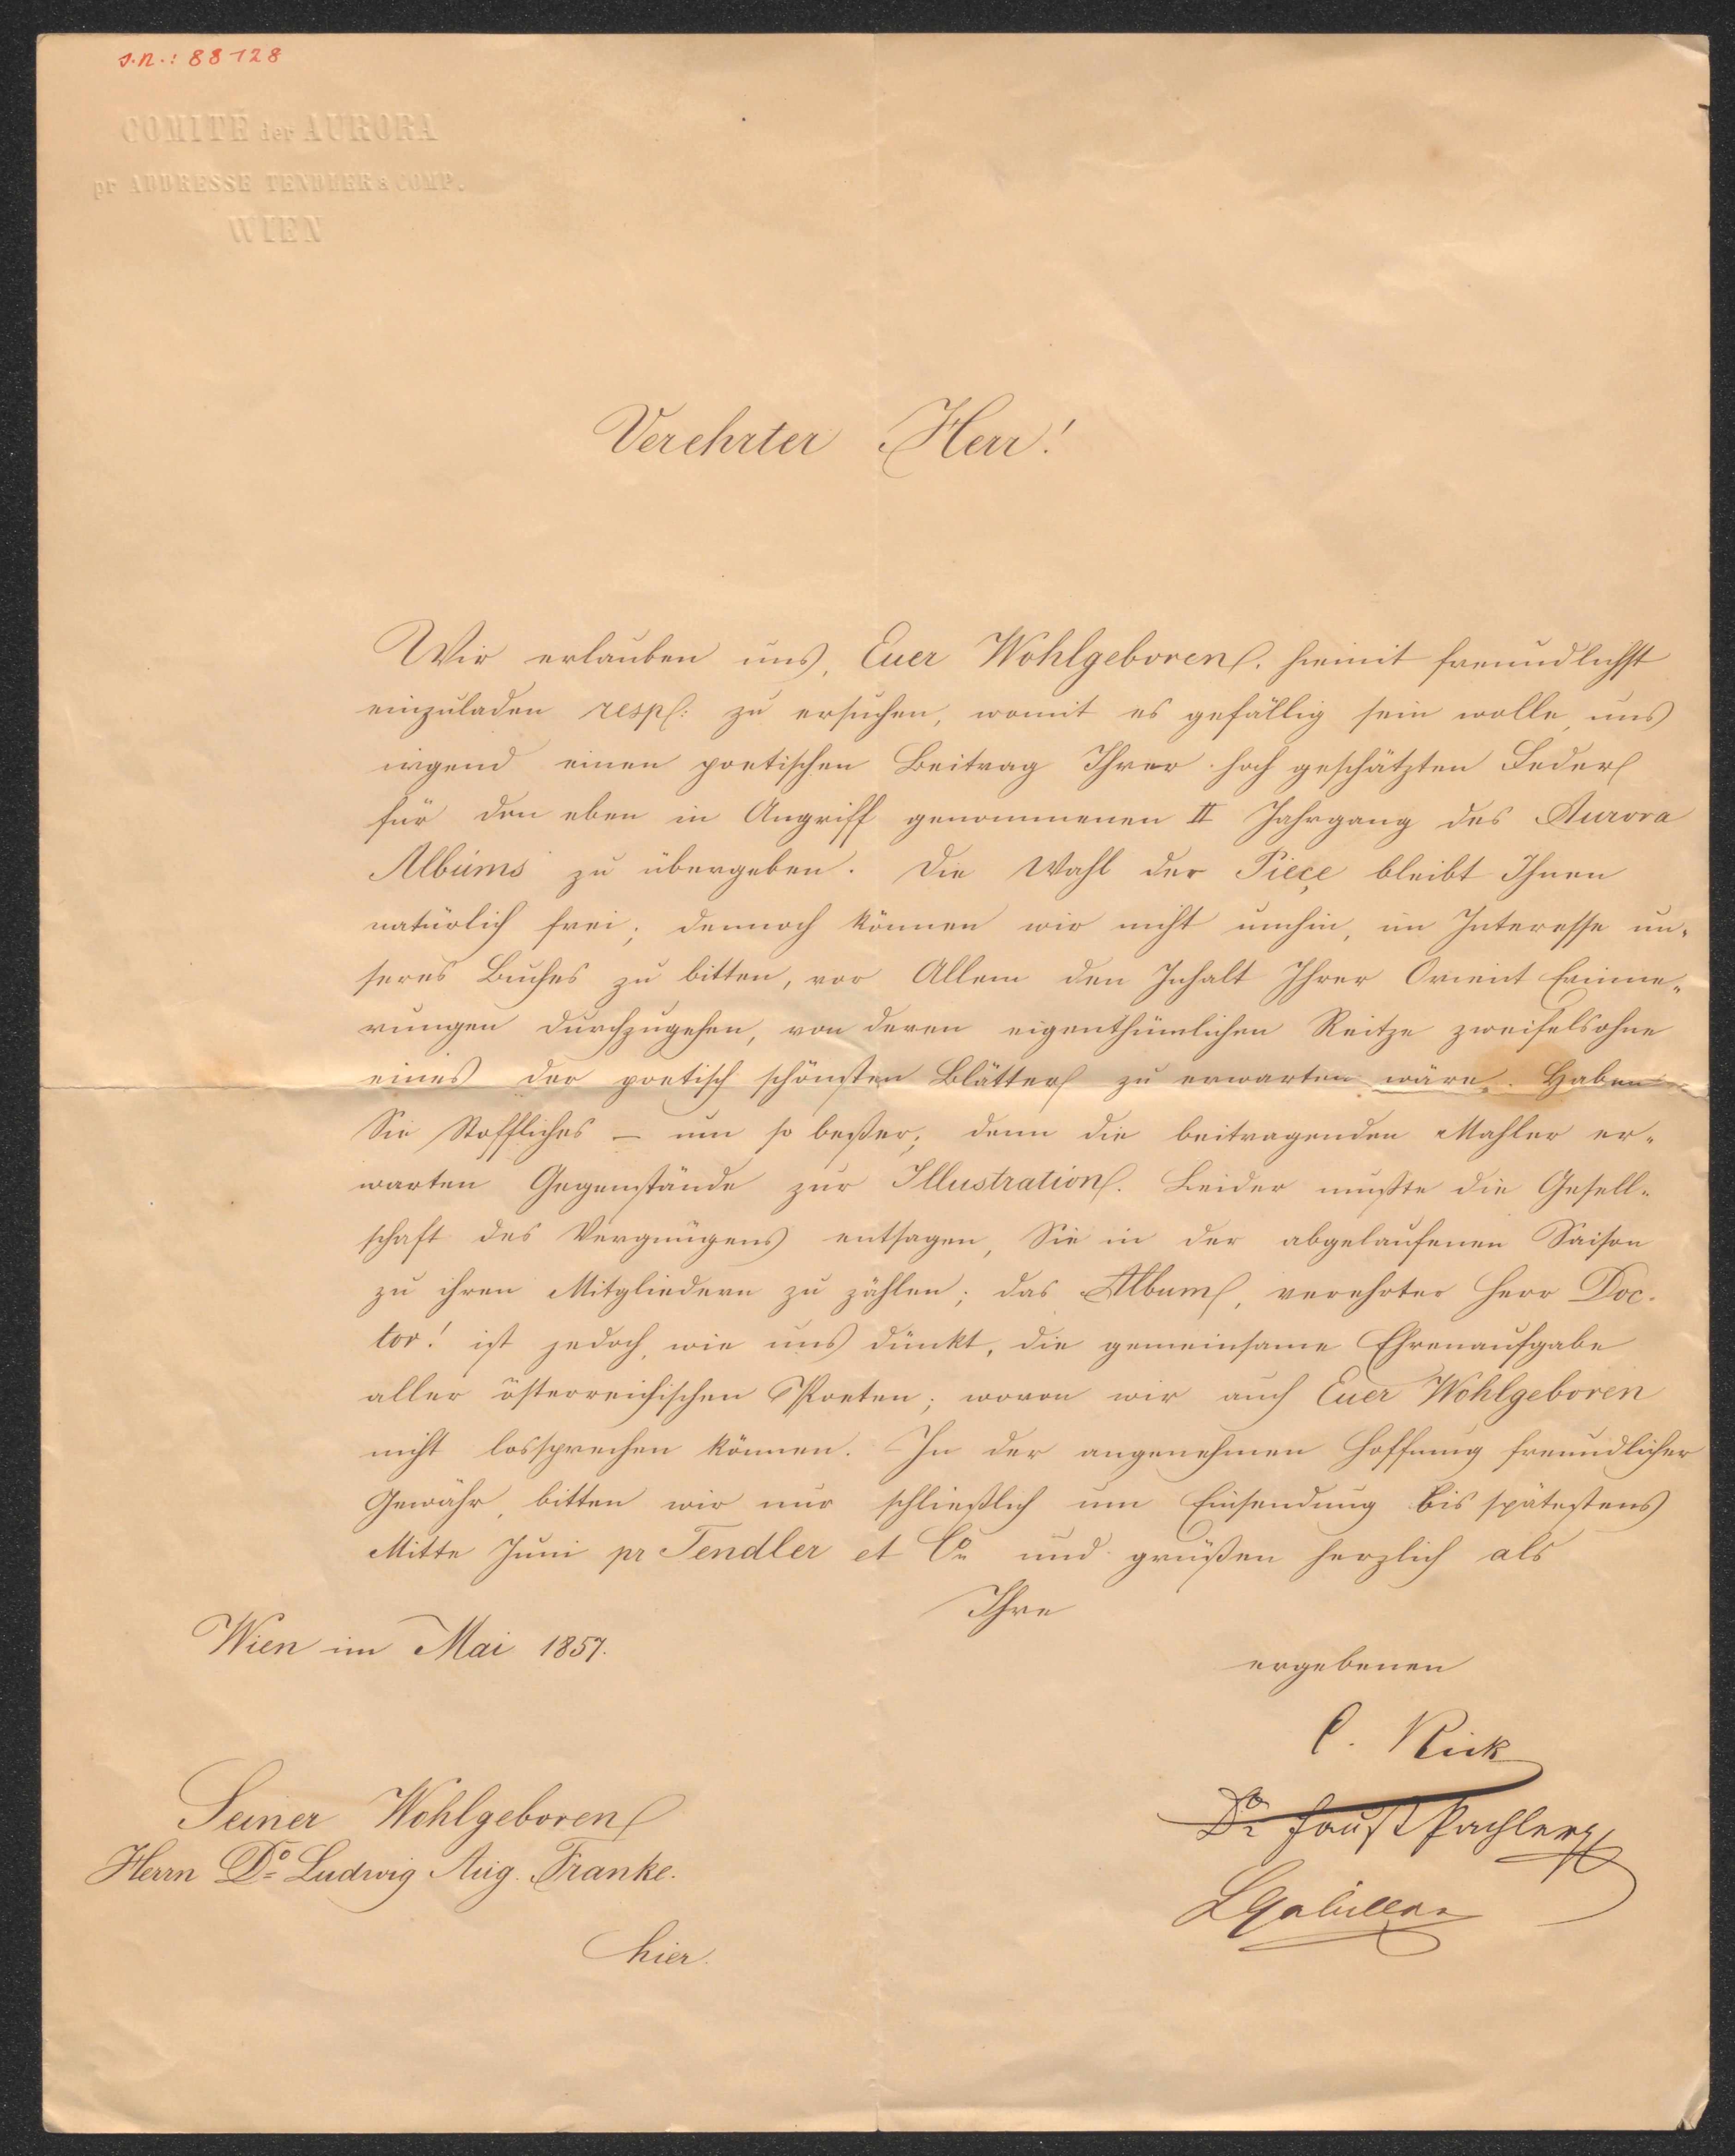 J.N.: 88128
COMITÉ der AURORA
pr ADDRESSE TENDLER & COMP.
WIEN
Verehrter Herr!
Wir erlauben uns, Euer Wohlgeboren hiemit freundlichst
einzuladen resp: zu ersuchen, womit es gefällig sein wolle, uns
irgend einen poetischen Beitrag Ihrer hoch geschätzten Feder
für den eben in Angriff genommenen II Jahrgang des Aurora
Albums zu übergeben. Die Wahl der Pieçe bleibt Ihnen
natürlich frei; dennoch können wir nicht umhin, im Interesse un-
seres Buches zu bitten, vor Allem den Inhalt Ihrer Orient Erinne-
rungen durchzugehen, von deren eigenthümlichen Reitze zweifelsohne
eines der poetisch schönsten Blätter zu erwarten wäre. Haben
Sie Stoffliches – um so beßer; denn die beitragenden Mahler er-
warten Gegenstände zur Illustration. Leider mußte die Gesell-
schaft des Vergnügens entsagen, Sie in der abgelaufenen Saison
zu ihren Mitgliedern zu zählen; das Album, verehrter Herr Doc-
tor! ist jedoch, wie uns dünkt, die gemeinsame Ehrenaufgabe
aller österreichischen Poeten; wovon wir auch Euer Wohlgeboren
nicht lossprechen können. In der angenehmen Hoffnung freundlicher
Gewähr, bitten wir nur schließlich um Einsendung bis spätestens
Mitte Juni pr Tendler et Co und grüßen herzlich als
Ihre
Wien im Mai 1857.
ergebenen
C. Rick
Dr Faust Pachler
LGabillon
Seiner Wohlgeboren
Herrn Dr Ludwig Aug. Franke.
hier.